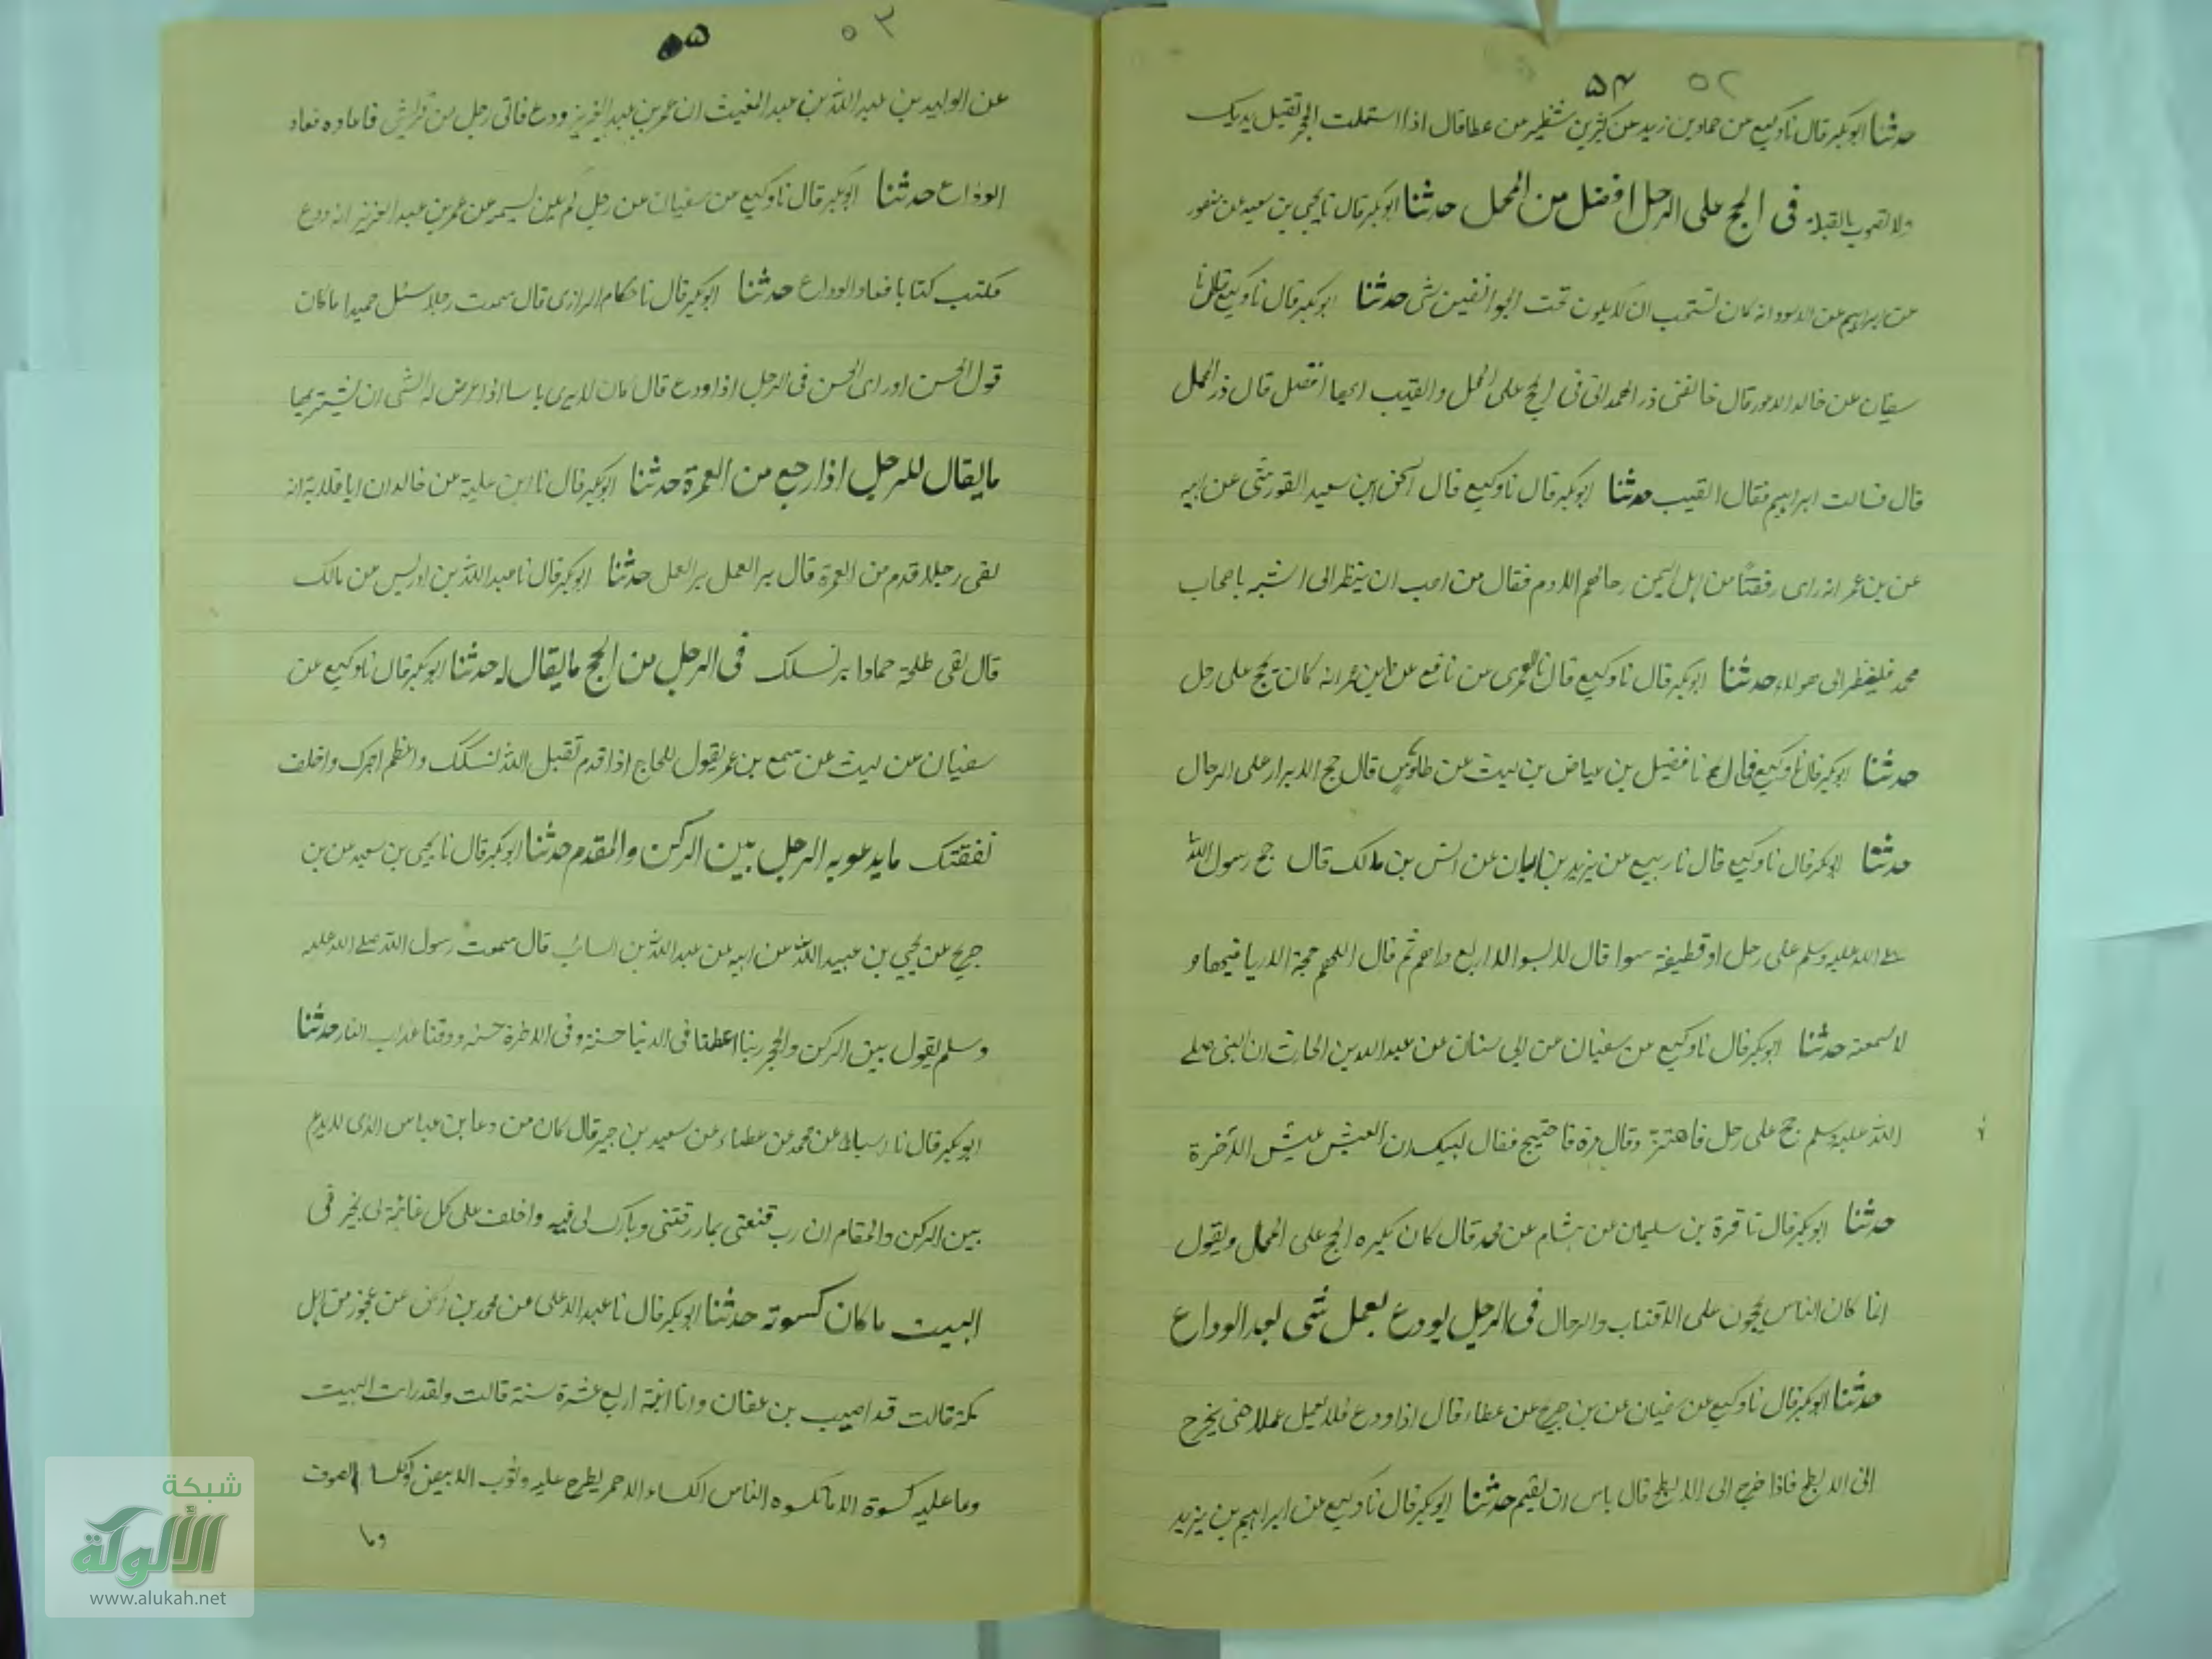 ۵۴ ٥٢
حدثنا ابوبكر قال نا وكيع عن حماد بن زيد عن كثير بن شنظير عن عطا قال اذا استلمت الحجر تقبل يديك
ولا تصوب بالقبلة فى الحج على الرحل افضل من المحمل حدثنا ابوبكر قال نا يحيى بن سعيد عن منصور
عن ابراهيم عن الاسود انه كان تستحب ان لا يكون تحت شى حدثنا ابوبكر قال نا وكيع قال نا
سفيان عن خالد قال خالفنى ذر الهمدانى فى الحج على المحمل والقتب ايهما افضل قال ذر المحمل
قال فسالت ابراهيم فقال القتيب حدثنا ابوبكر قال نا وكيع قال اسحق بن سعيد القورشى عن ابيه
عن بن عمر انه راى رفقتا من اهل اليمن رحالهم الادم فقال من احب ان ينظر الى اشبه باصحاب
محمد فلينظر الى هولاء حدثنا ابوبكر قال نا وكيع قال نا العمرى عن نافع عن ابن عمر انه كان يحج على رحل
حدثنا ابوبكر قال نا وكيع نا فضيل بن عياض بن ليث عن طاوس قال حج الابرار على الرحال
حدثنا ابوبكر قال نا وكيع قال نا ربيع عن يزيد بن ابان عن انس بن مالك قال حج رسول الله
صلى الله عليه وسلم على رحل او قطيفة سوا قال الا اربع دراهم ثم قال اللهم حجة لا ريا فيها و
لا سمعة حدثنا ابوبكر قال نا وكيع عن سفيان عن ابى سنان عن عبد الله بن الحارث ان النبى صلى
الله عليه وسلم حج على رحل فاهتز وقال مرة فاجتيح فقال لبيك ان العيش عيش الاخرة
حدثنا ابوبكر قال نا قرة بن سليمان عن هشام عن محمد قال كان يكره الحج على المحامل ويقول
انما كان الناس يحجون على الاقتاب والرحال فى الرجل يودع يعمل شى بعد الوداع
حدثنا ابوبكر قال نا وكيع عن سفيان عن بن جريج عن عطاء قال اذا ودع فلا يعمل عملا حتى يخرج
الى الابطح فاذا خرج الى الابطح قال باس ان يقيم حدثنا ابوبكر قال نا وكيع عن ابراهيم بن يزيد
۵۵ ٥٣
عن الوليد بن عبد الله بن عبد المغيث ان عمر بن عبد العزيز ودع فاتى رجل من قريش فاعاده فعاد
الوداع حدثنا ابوبكر قال نا وكيع عن سفيان عن رجل لم عن عمر بن عبد العزيز انه ودع
فكتب كتابا فعاد الوداع حدثنا ابوبكر قال نا حكام الرازى قال سمعت رجلا سئل حميدا ما كان
قول الحسن او راى الحسن فى الرجل اذا ودع قال كان لا يرى باسا اذا عرض له الشى ان يشتريها
ما يقال للرجل اذا رجع من العمرة حدثنا ابوبكر قال نا ابن علية عن خالد ان ابا قلابة انه
لقى رجلا قدم من العمرة قال بر العمل بر العمل حدثنا ابوبكر قال نا عبد الله بن ادريس عن مالك
قال لقى طلحة حمادا بر نسكك فى الرجل من الحج ما يقال له حدثنا ابوبكر قال نا وكيع عن
سفيان عن ليث عن سمع بن عمر يقول للحاج اذا قدم تقبل الله نسكك واعظم اجرك واخلف
نفقتك ما يدعو به الرجل بين الركن والمقدم حدثنا ابوبكر قال نا يحيى بن سعيد عن بن
جريج عن يحيى بن عبيد الله عن ابيه عن عبد الله بن السائب قال سمعت رسول الله صلى الله عليه
وسلم يقول بين الركن والحجر ربنا اعطنا فى الدنيا حسنة وفى الاخرة حسنة ووقنا عذاب النار حدثنا
ابوبكر قال نا اسباط عن محمد عن عطاء عن سعيد بن جبير قال كان من دعا بن عباس الذى لا يدع
بين الركن والمقام ان رب قنعنى بما رزقتنى وبارك لى فيه واخلف على كل غائبة لى بخير فى
البيت ما كان كسوته حدثنا ابوبكر قال نا عبد الاعلى عن محمد بن عن عجوز من اهل
مكة قالت قد اصيب بن عفان وانا ابنة اربع عشرة سنة قالت ولقد رايت البيت
وما عليه كسوة الا ما تكسوه الناس الكساء الاحمر يطرح عليه وثوب الابيض وكسا الصوف
وما
شبكة
الألوكة
www.alukah.net